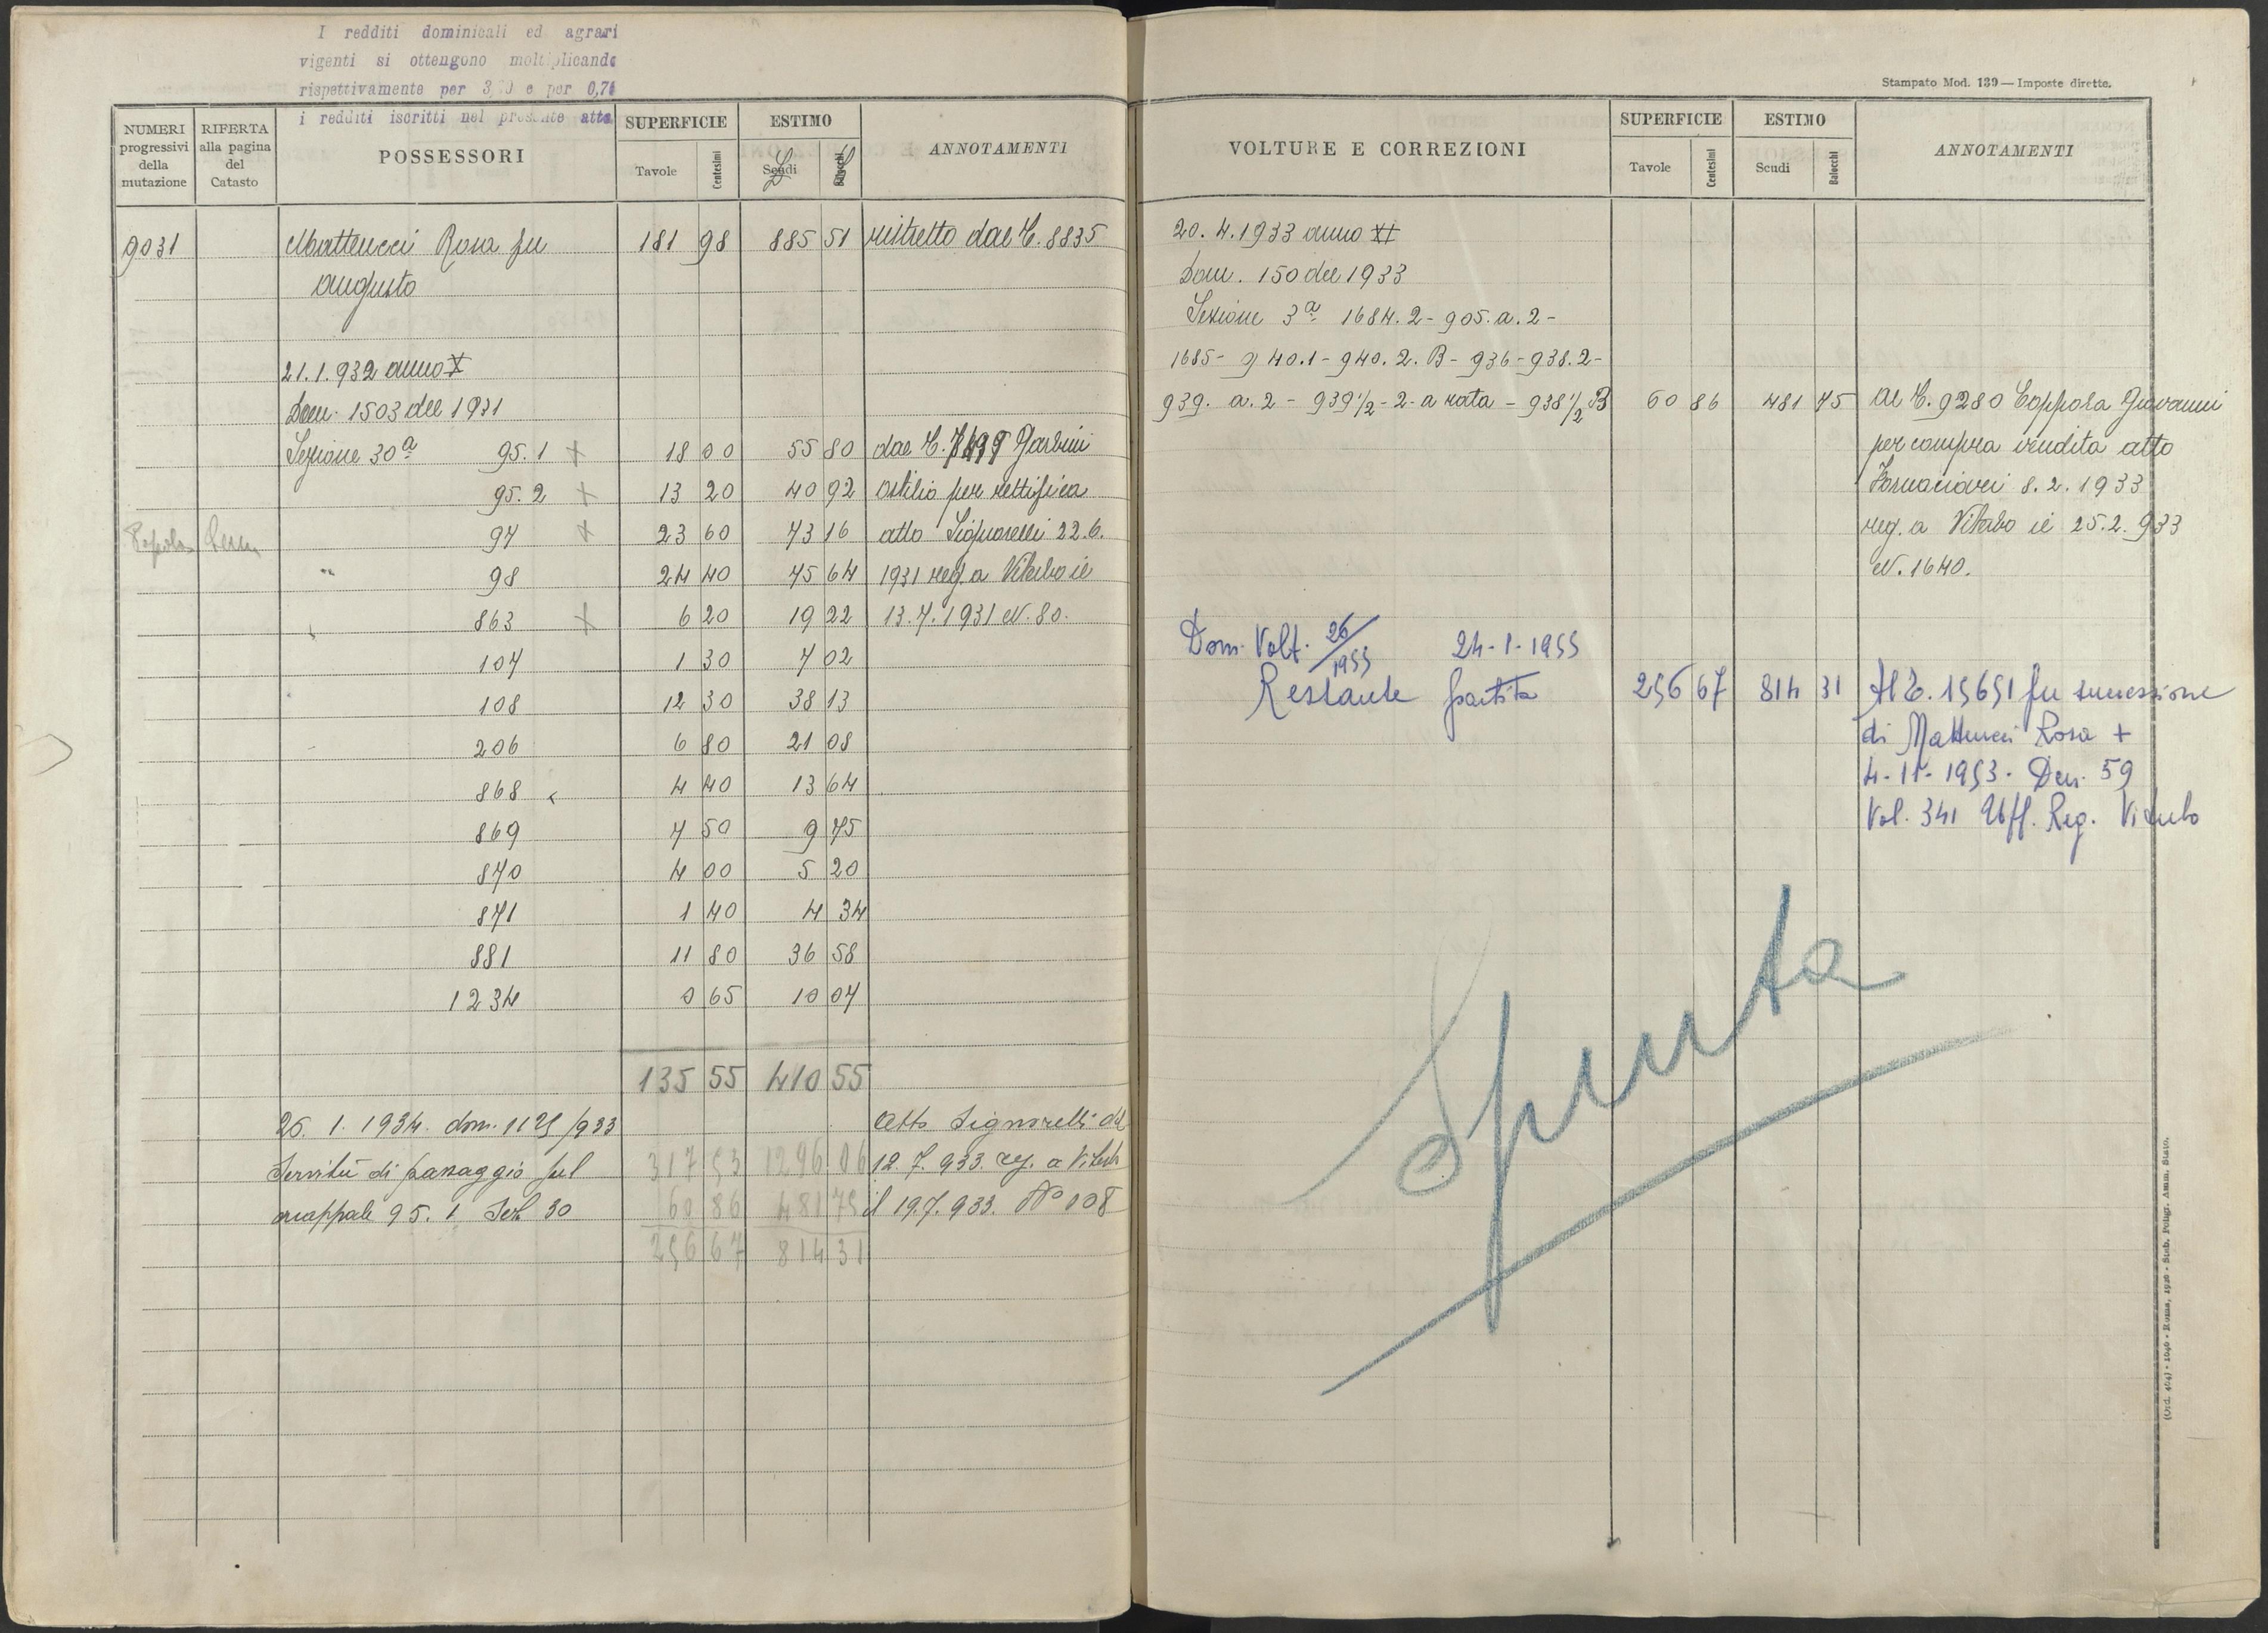 I redditi dominicali ed agrari
vigenti si ottengono moltiplicando
rispettivamente per e per 0,7
i redditi iscritti nel presente atto
NUMERI progressivi della mutazione
RIFERTA alla pagina del Catasto
POSSESSORI
SUPERFICIE
Tavole Centesimi
ESTIMO
Scudi Baiocchi
ANNOTAMENTI
9031 Matteucci Rosa fu 181 98 885 51 ristretto dal C. 8835
Augusto
21.1.932 anno X
Dom. 1503 del 1931
Sezione 30ª 95.1 X 18 00 55 80 dal C. Garbini
95.2 X 13 20 40 92 Ostilio per rettifica
97 X 23 60 73 16 atto Signorelli 22.6.
" 98 24 40 75 64 1931 reg. a Viterbo il
863 X 6 20 19 22 13.7.1931 N. 80.
107 1 30 7 02
108 12 30 38 13
206 6 80 21 08
868 4 40 13 64
869 7 50 9 75
870 4 00 5 20
871 1 40 4 34
881 11 80 36 58
1234 0 65 10 07
135 55 410 55
26. 1. 1934. dom. 1125/933 Atto Signorelli del
Servitù di passaggio sul 317 53 1296 06 12. 7. 933. reg. a Viterbo
mappale 95. 1 Sez 30 60 86 481 75 il 19.7.933. N° 108
256 67 814 31
Stampato Mod. 139 — Imposte dirette.
VOLTURE E CORREZIONI
SUPERFICIE
Tavole Centesimi
ESTIMO
Scudi Baiocchi
ANNOTAMENTI
20. 4. 1933 anno XI
Dom. 150 del 1933
Sezione 3ª 1684. 2 - 905. a. 2 -
1685 - 940.1 - 940. 2. B - 936 - 938. 2 -
939. a. 2 - 939 1/2 - 2 - a rata - 938 1/2 B 60 86 481 75 Al C. 9280 Coppola Giovanni
per compra vendita atto
Fornaciari 8. 2. 1933
reg. a Viterbo il 25. 2. 933
N. 1640.
Dom. Volt. 26/1955 24-1-1955
Restante partita 256 67 814 31 Al C. 15651 per successione
di Matteucci Rosa +
4-11-1953. Den. 59
Vol. 341 Uff. Reg. Viterbo
Spunta
(Ord. 464) - 1040 - Roma, 1926 - Stab. Poligr. Amm. Stato.